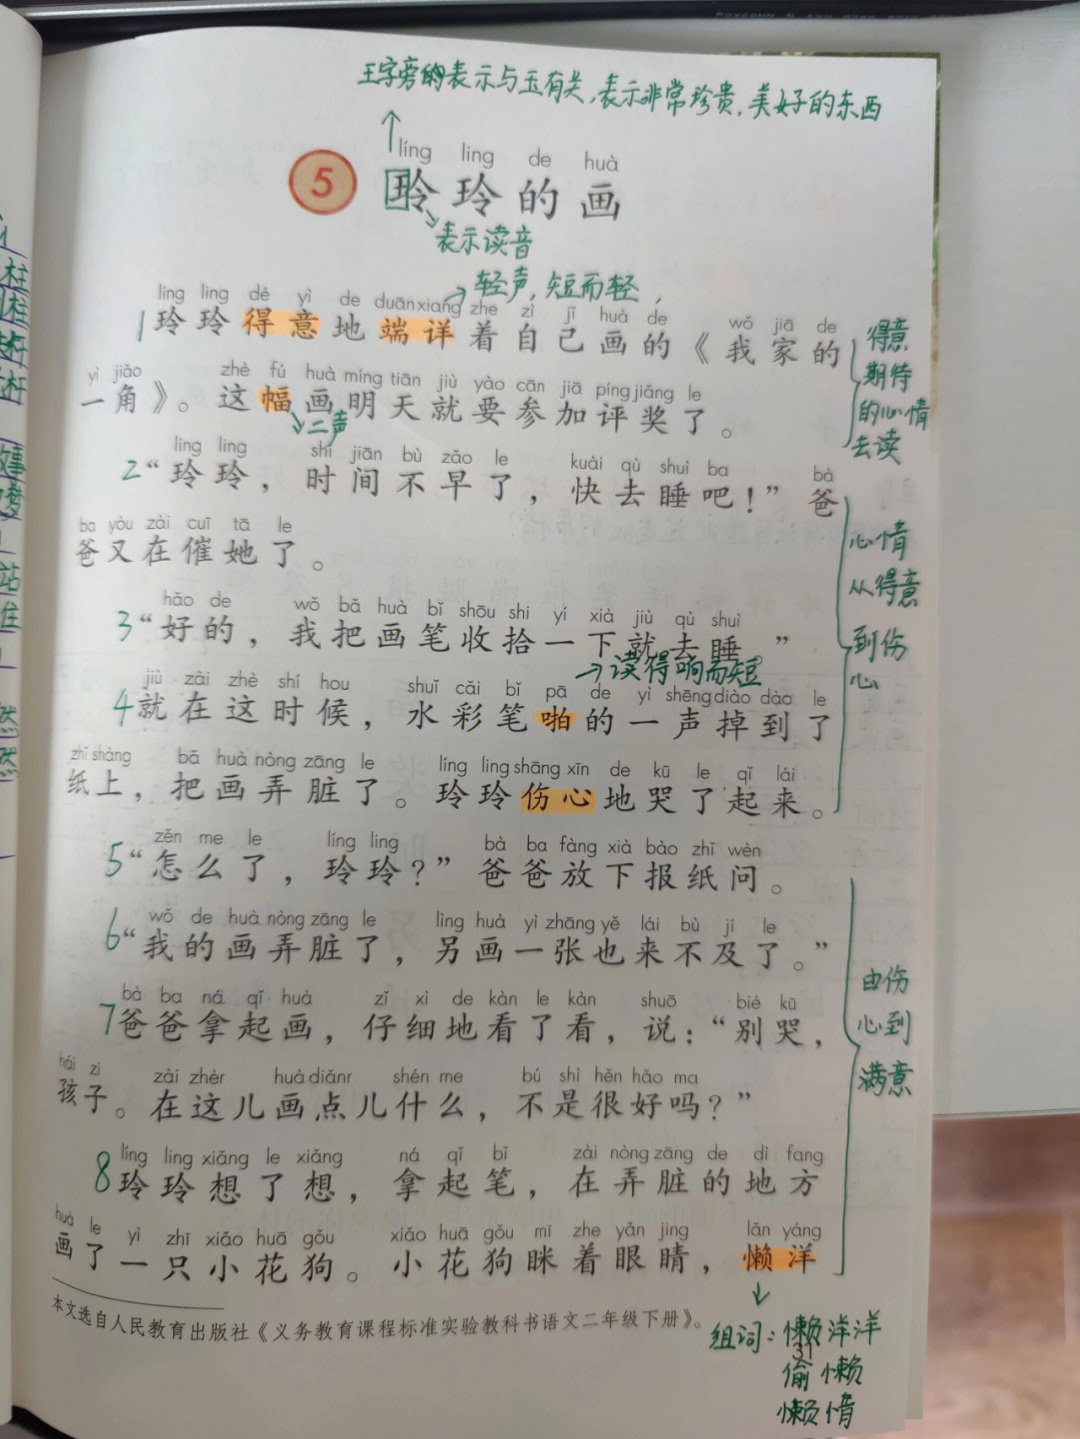 王字旁的表示与玉有关,表示非常珍贵,美好的东西
líng ling de huà
5 玲玲的画
表示读音
轻声,短而轻,
líng ling dé yì de duān xiang zhe zì jǐ huà de wǒ jiā de
1 玲玲得意地端详着自己画的《我家的
得意
期待
的心情
去读
yì jiǎo zhè fú huà míng tiān jiù yào cān jiā píng jiǎng le
一角》。这幅画明天就要参加评奖了。
二声
líng ling shí jiān bù zǎo le kuài qù shuì ba bà
2 “玲玲,时间不早了,快去睡吧!”爸
ba yòu zài cuī tā le
爸又在催她了。
心情
从得意
到伤
心
hǎo de wǒ bǎ huà bǐ shōu shi yí xià jiù qù shuì
3 “好的,我把画笔收拾一下就去睡。”
读得响而短
jiù zài zhè shí hou shuǐ cǎi bǐ pā de yì shēng diào dào le
4 就在这时候,水彩笔啪的一声掉到了
zhǐ shàng bǎ huà nòng zāng le líng ling shāng xīn de kū le qǐ lái
纸上,把画弄脏了。玲玲伤心地哭了起来。
zěn me le líng ling bà ba fàng xià bào zhǐ wèn
5 “怎么了,玲玲?”爸爸放下报纸问。
wǒ de huà nòng zāng le lìng huà yì zhāng yě lái bù jí le
6 “我的画弄脏了,另画一张也来不及了。”
由伤
心到
满意
bà ba ná qǐ huà zǐ xì de kàn le kàn shuō bié kū
7 爸爸拿起画,仔细地看了看,说:“别哭,
hái zi zài zhèr huà diǎnr shén me bú shì hěn hǎo ma
孩子。在这儿画点儿什么,不是很好吗?”
líng ling xiǎng le xiǎng ná qǐ bǐ zài nòng zāng de dì fang
8 玲玲想了想,拿起笔,在弄脏的地方
huà le yì zhī xiǎo huā gǒu xiǎo huā gǒu mī zhe yǎn jing lǎn yáng
画了一只小花狗。小花狗眯着眼睛,懒洋
本文选自人民教育出版社《义务教育课程标准实验教科书语文二年级下册》。
组词:懒洋洋
31
偷懒
懒惰